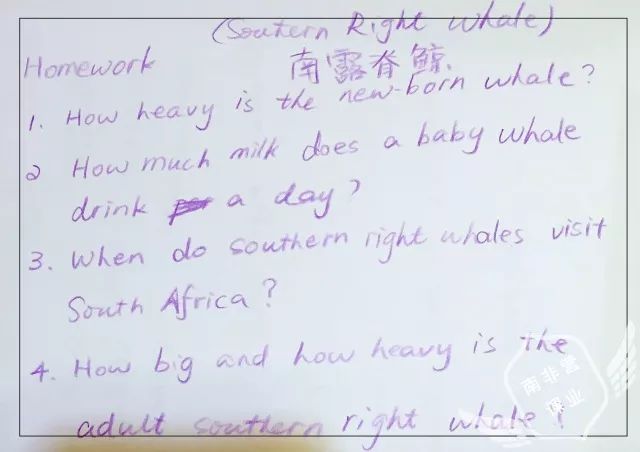 (Soutern Right Whale)
Homework 南露脊鲸
1. How heavy is the new-born whale?
2 How much milk does a baby whale
drink a day?
3. When do southern right whales visit
South Africa?
4. How big and how heavy is the
adult southern right whale?
南非营